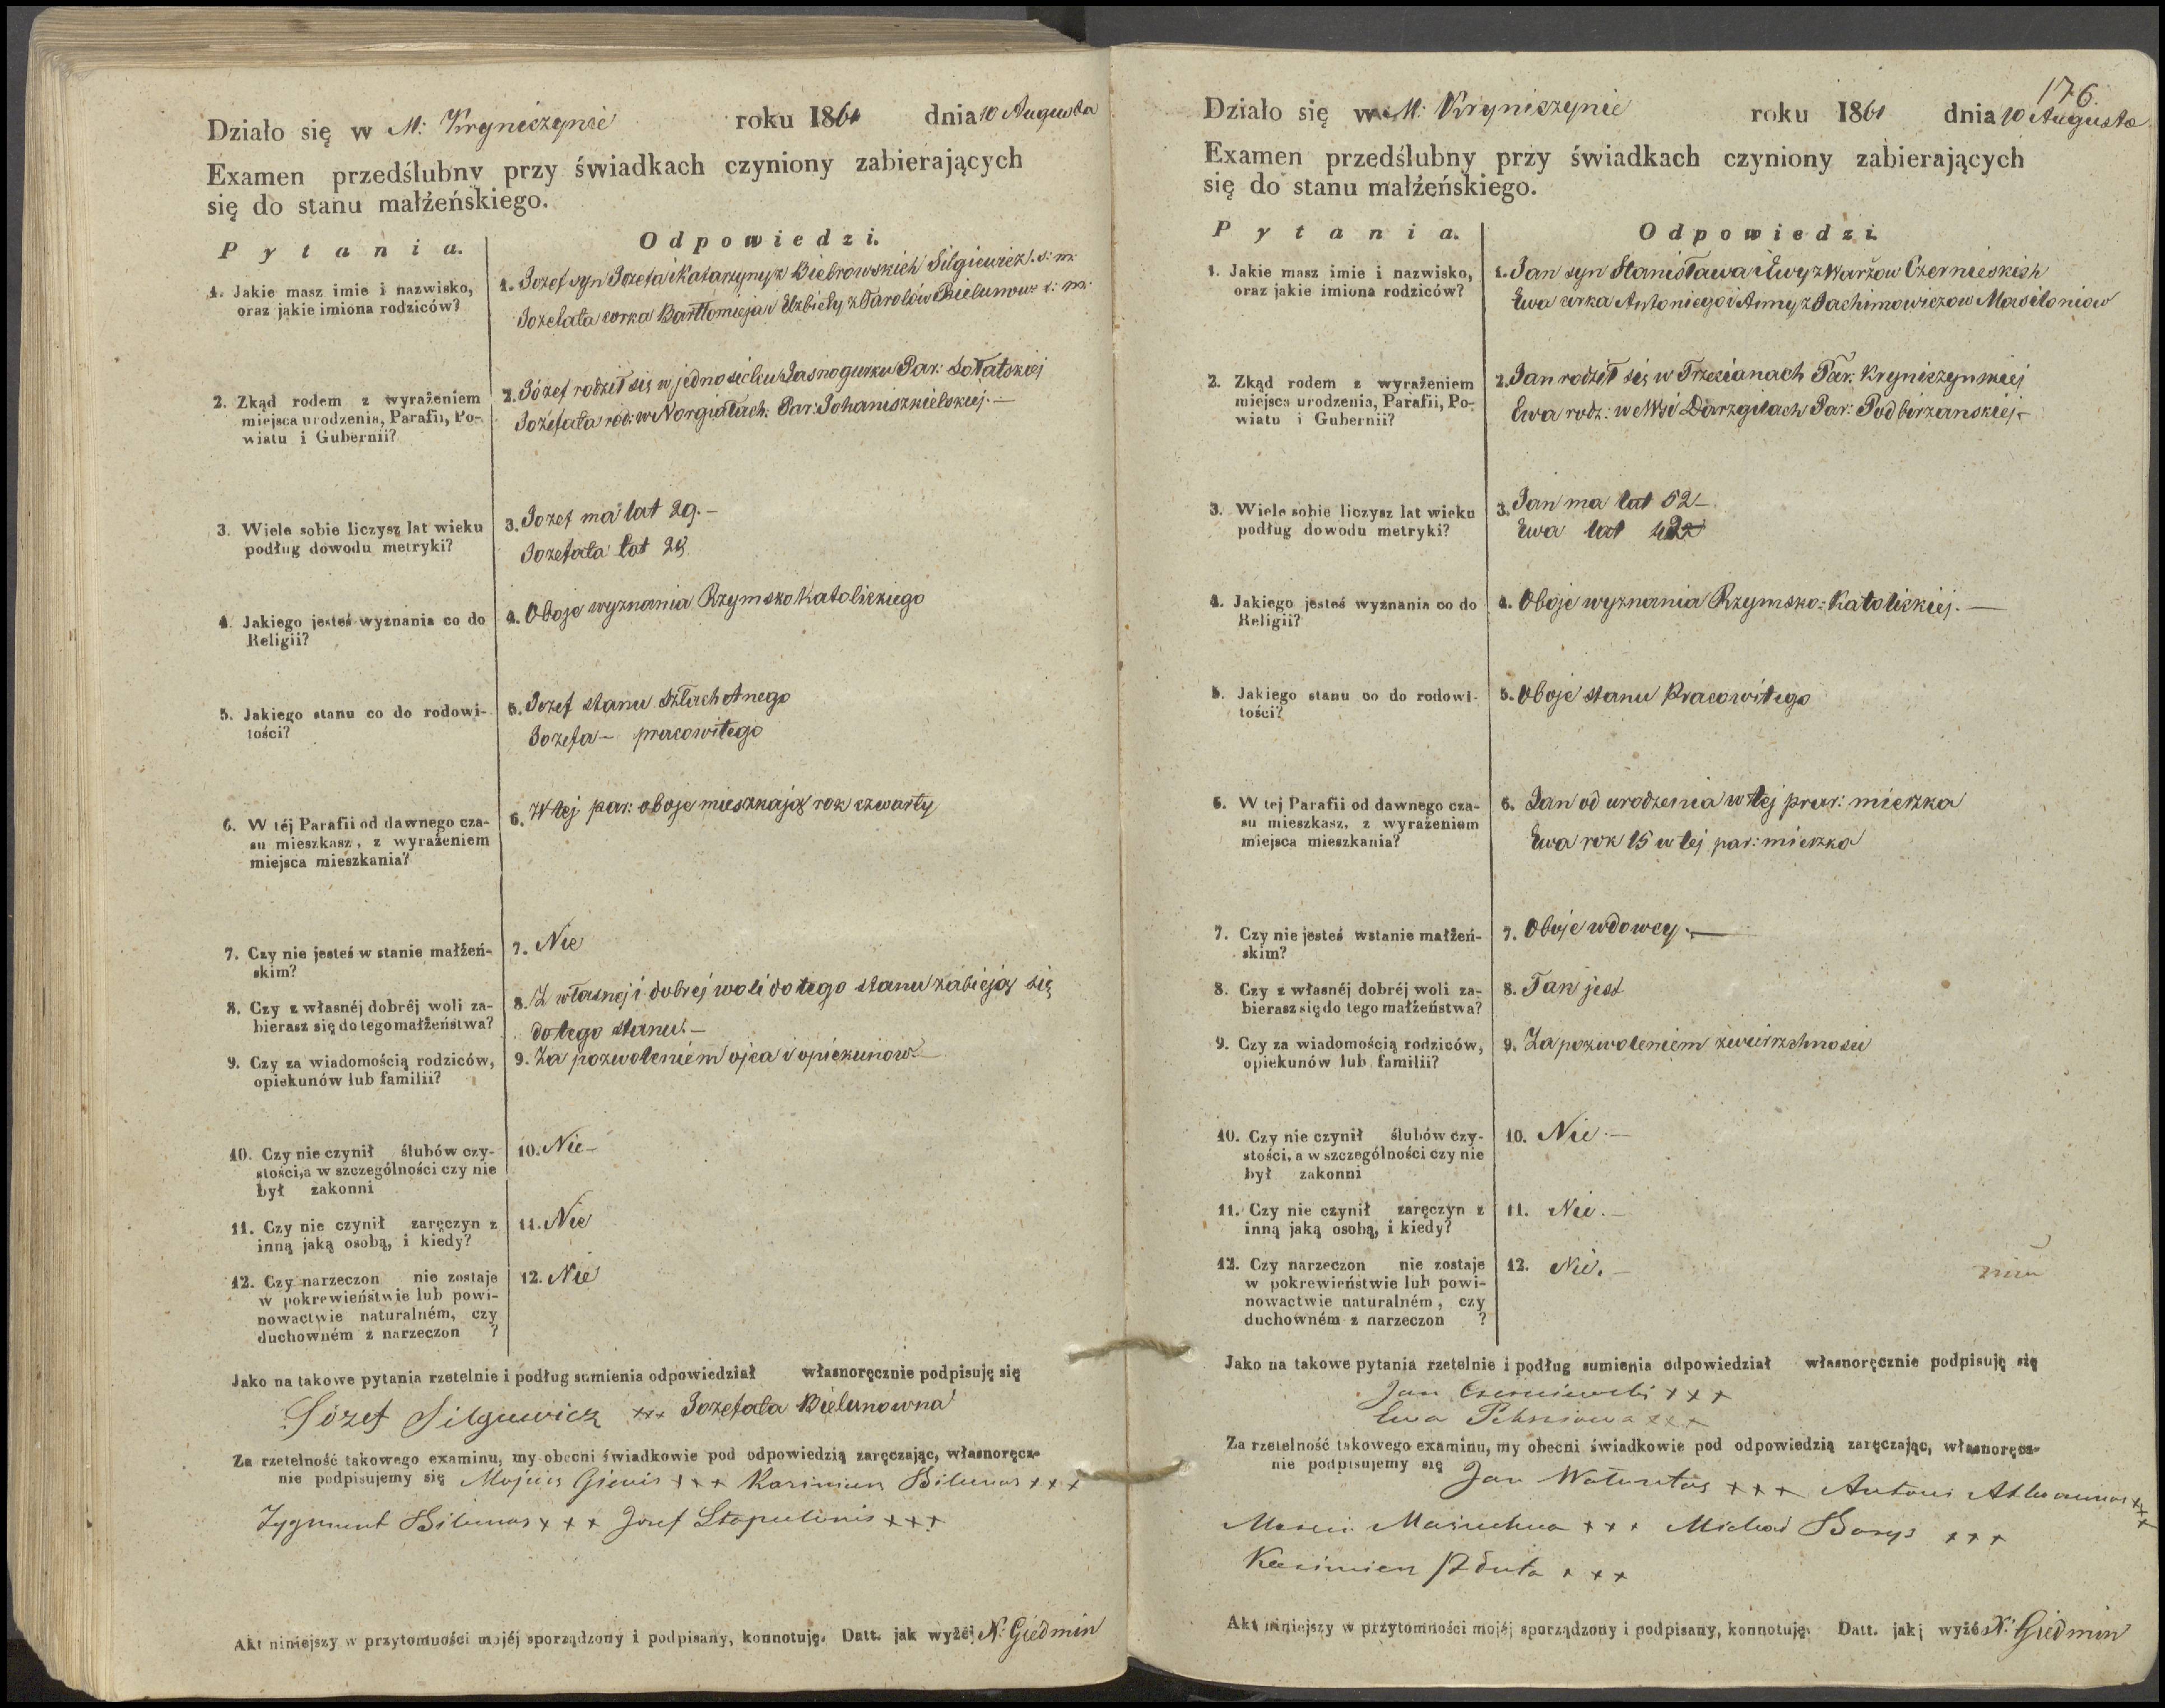 Działo się w M: Kryniczynie roku 1861 dnia 10 Augusta
Examen przedślubny przy świadkach czyniony zabierających
się do stanu małżeńskiego.
Pytania.
Odpowiedzi.
1. Jakie masz imie i nazwisko,
oraz jakie imiona rodziców?
1. Jozef syn Jozefa i Katarzyny z Biebrowskich Silgiewicz. s: m:
Jozefata corka Bartłomieja i Elzbiety z Tarolów Bielunow s: m:
2. Zkąd rodem z wyrażeniem
miejsca urodzenia, Parafii, Po-
wiatu i Gubernii?
2. Józef rodził się w jednosielcu Jasnogurku Par: Sołatskiej
Jozefata rod: w Norgiałach. Par: Johaniszkielskiej. —
3. Wiele sobie liczysz lat wieku
podług dowodu metryki?
3. Jozef ma lat 29. —
Jozefata lat
4. Jakiego jesteś wyznania co do
Religii?
4. Oboje wyznania Rzymsko Katolickiego
5. Jakiego stanu co do rodowi-
tości?
5. Jozef stanu Szlachetnego
Jozefa — pracowitego
6. W téj Parafii od dawnego cza-
su mieszkasz, z wyrażeniem
miejsca mieszkania?
6. W tej par: oboje mieszkają rok czwarty
7. Czy nie jesteś w stanie małżeń-
skim?
7. Nie
8. Czy z własnéj dobréj woli za-
bierasz się do tego małżeństwa?
8. Z własnej i dobrej woli do tego stanu zabieją się
do tego stanu. —
9. Czy za wiadomością rodziców,
opiekunów lub familii?
9. Za pozwoleniem ojca i opiekunow. —
10. Czy nie czynił ślubów czy-
stości, a w szczególności czy nie
był zakonni
10. Nie —
11. Czy nie czynił zaręczyn z
inną jaką osobą, i kiedy?
11. Nie
12. Czy narzeczon nie zostaje
w pokrewieństwie lub powi-
nowactwie naturalném, czy
duchowném z narzeczon ?
12. Nie
Jako na takowe pytania rzetelnie i podług sumienia odpowiedział własnoręcznie podpisuję się
Józef Silgiewicz xxx Jozefata Bielunowna
Za rzetelność takowego examinu, my obecni świadkowie pod odpowiedzią zaręczając, własnoręcz-
nie podpisujemy się Gienis x x x Kazimierz Bilunas x x x
Zygmunt Bilunas x x x Jozef Stapulinis x x x
Akt niniejszy w przytomności mojéj sporządzony i podpisany, konnotuję. Datt. jak wyżéj X. Giedmin
176.
Działo się w M. Kryniczynie roku 1861 dnia 10 Augusta
Examen przedślubny przy świadkach czyniony zabierających
się do stanu małżeńskiego.
Pytania.
Odpowiedzi.
1. Jakie masz imie i nazwisko,
oraz jakie imiona rodziców?
1. Jan syn Stanisława i Ewy z Warżow Czernieskich
Ewa curka Antoniego i Anny z Jachimowiczow Masiloniow
2. Zkąd rodem z wyrażeniem
miejsca urodzenia, Parafii, Po-
wiatu i Gubernii?
2. Jan rodził się w Trzecianach Par. Kryniczynskiej
Ewa rodz: we Wsi Darzgilach Par: Podbirzanskiej —
3. Wiele sobie liczysz lat wieku
podług dowodu metryki?
3. Jan ma lat 52 —
Ewa lat
4. Jakiego jesteś wyznania co do
Religii?
4. Oboje wyznania Rzymsko: Katolickiej. —
5. Jakiego stanu co do rodowi-
tości?
5. Oboje stanu Pracowitego
6. W tej Parafii od dawnego cza-
su mieszkasz, z wyrażeniem
miejsca mieszkania?
6. Jan od urodzenia w tej prar: mieszka
Ewa rok 15 w tej par: mieszka
7. Czy nie jesteś wstanie małżeń-
skim?
7. Oboje wdowcy. —
8. Czy z własnéj dobréj woli za-
bierasz się do tego małżeństwa?
8. Tak jest
9. Czy za wiadomością rodziców,
opiekunów lub familii?
9. Za pozwoleniem zwierzchnosci
10. Czy nie czynił ślubów czy-
stości, a w szczególności czy nie
był zakonni
10. Nie. —
11. Czy nie czynił zaręczyn z
inną jaką osobą, i kiedy?
11. Nie. —
12. Czy narzeczon nie zostaje
w pokrewieństwie lub powi-
nowactwie naturalném, czy
duchowném z narzeczon ?
12. Nie. —
Jako na takowe pytania rzetelnie i podług sumienia odpowiedział własnoręcznie podpisuję się
Jan Czerniewski x x x
Ewa x x x
Za rzetelność takowego examinu, my obecni świadkowie pod odpowiedzią zaręczając, własnoręcz-
nie podpisujemy się Jan x x x Antoni x x x
x x x Michał Borys x x x
Kazimierz x x x
Akt niniejszy w przytomności mojéj sporządzony i podpisany, konnotuję. Datt. jak wyżé X. Giedmin